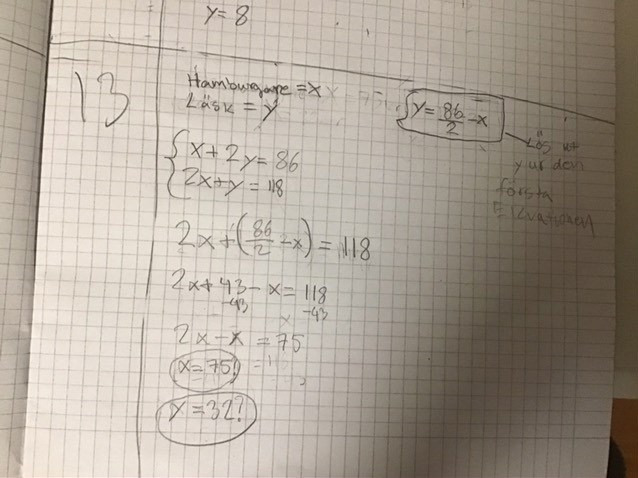 y=8
13
Hamburgare = x
Läsk = y
{y = 86/2 - x
Lös ut
y ur den
första
Ekvationen
{x + 2y = 86
2x + y = 118
2x + (86/2 - x) = 118
2x + 43 - x = 118
-43 -43
2x - x = 75
x = 75?
y = 32?